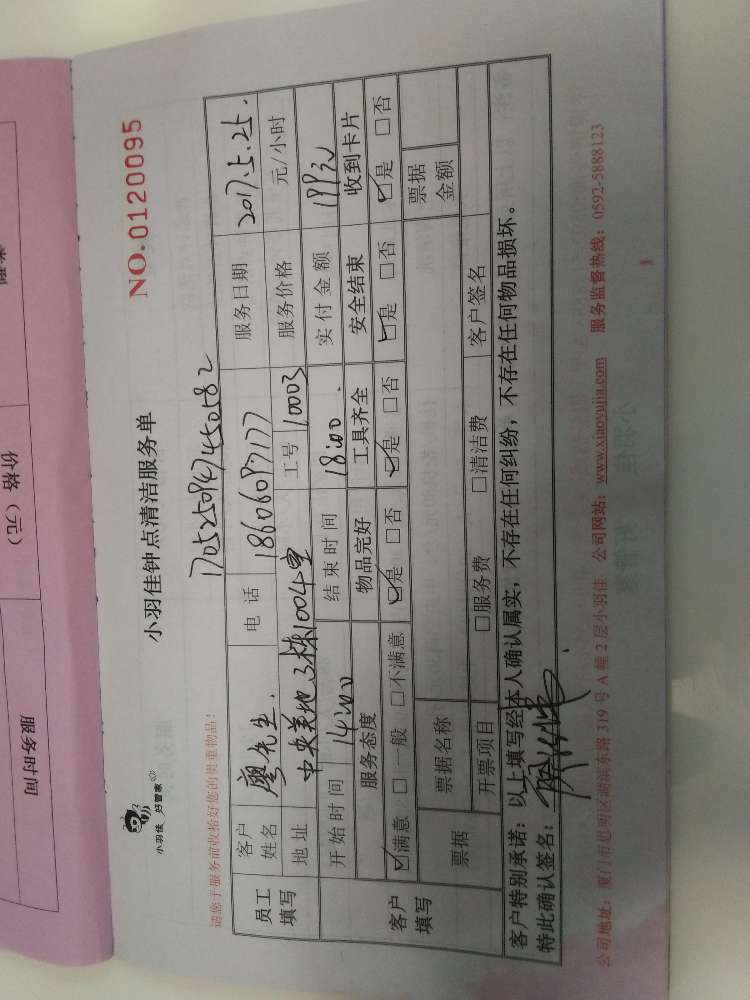 小羽佳 好管家
小羽佳钟点清洁服务单
NO.0120095
请您于服务前收拾好您的贵重物品!
17052509474450582
员工填写
客户姓名 廖先生. 电话 18606097177 服务日期 2017.5.25.
地址 中央美地3栋1004室 工号 10003 服务价格 元/小时
客户填写
开始时间 14:00 结束时间 18:00. 实付金额 199元
服务态度 物品完好 工具齐全 安全结束 收到卡片
☑满意 □一般 □不满意 ☑是 □否 ☑是 □否 ☑是 □否 ☑是 □否
票据 票据名称 票据金额
开票项目 □服务费 □清洁费 客户签名
客户特别承诺:以上填写经本人确认属实,不存在任何纠纷,不存在任何物品损坏。
特此确认签名:
公司地址:厦门市思明区湖滨东路 319 号 A 幢 2 层小羽佳 公司网站:www.xiaoyujia.com 服务监督热线:0592-5888123
价格(元)
服务时间